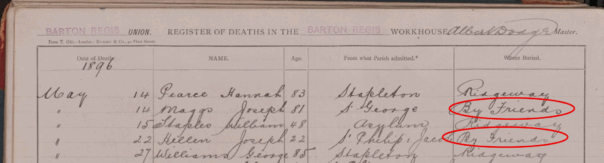 BARTON REGIS UNION. REGISTER OF DEATHS IN THE BARTON REGIS WORKHOUSE Master.
Date of Death NAME. Age. From what Parish admitted. Where Buried.
1896
May 14 Pearce Hannah 83 Stapleton Ridgeway
" 14 Maggs Joseph 81 St George By Friends
" 15 Staples William 48 Asylum Ridgeway
" 22 Killen Joseph 22 St Philip & Jacob By Friends
" 27 Williams George 85 Stapleton Ridgeway